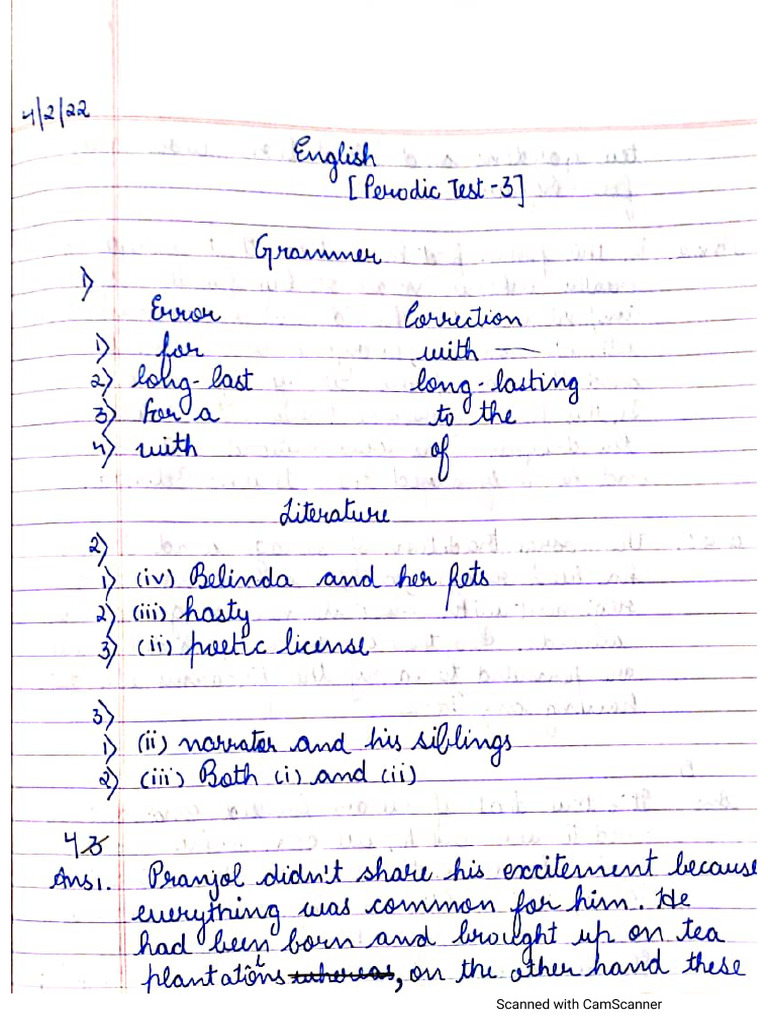 4/2/22
English
[Periodic Test-3]
Grammer
1)
Error Correction
1) for with —
2) long-last long-lasting
3) for a to the
4) with of
Literature
2)
1) (iv) Belinda and her pets
2) (iii) hasty
3) (ii) poetic license
3)
1) (ii) narrator and his siblings
2) (iii) Both (i) and (ii)
4
Ans1. Pranjol didn't share his excitement because
everything was common for him. He
had been born and brought up on tea
plantations whereas, on the other hand these
Scanned with CamScanner